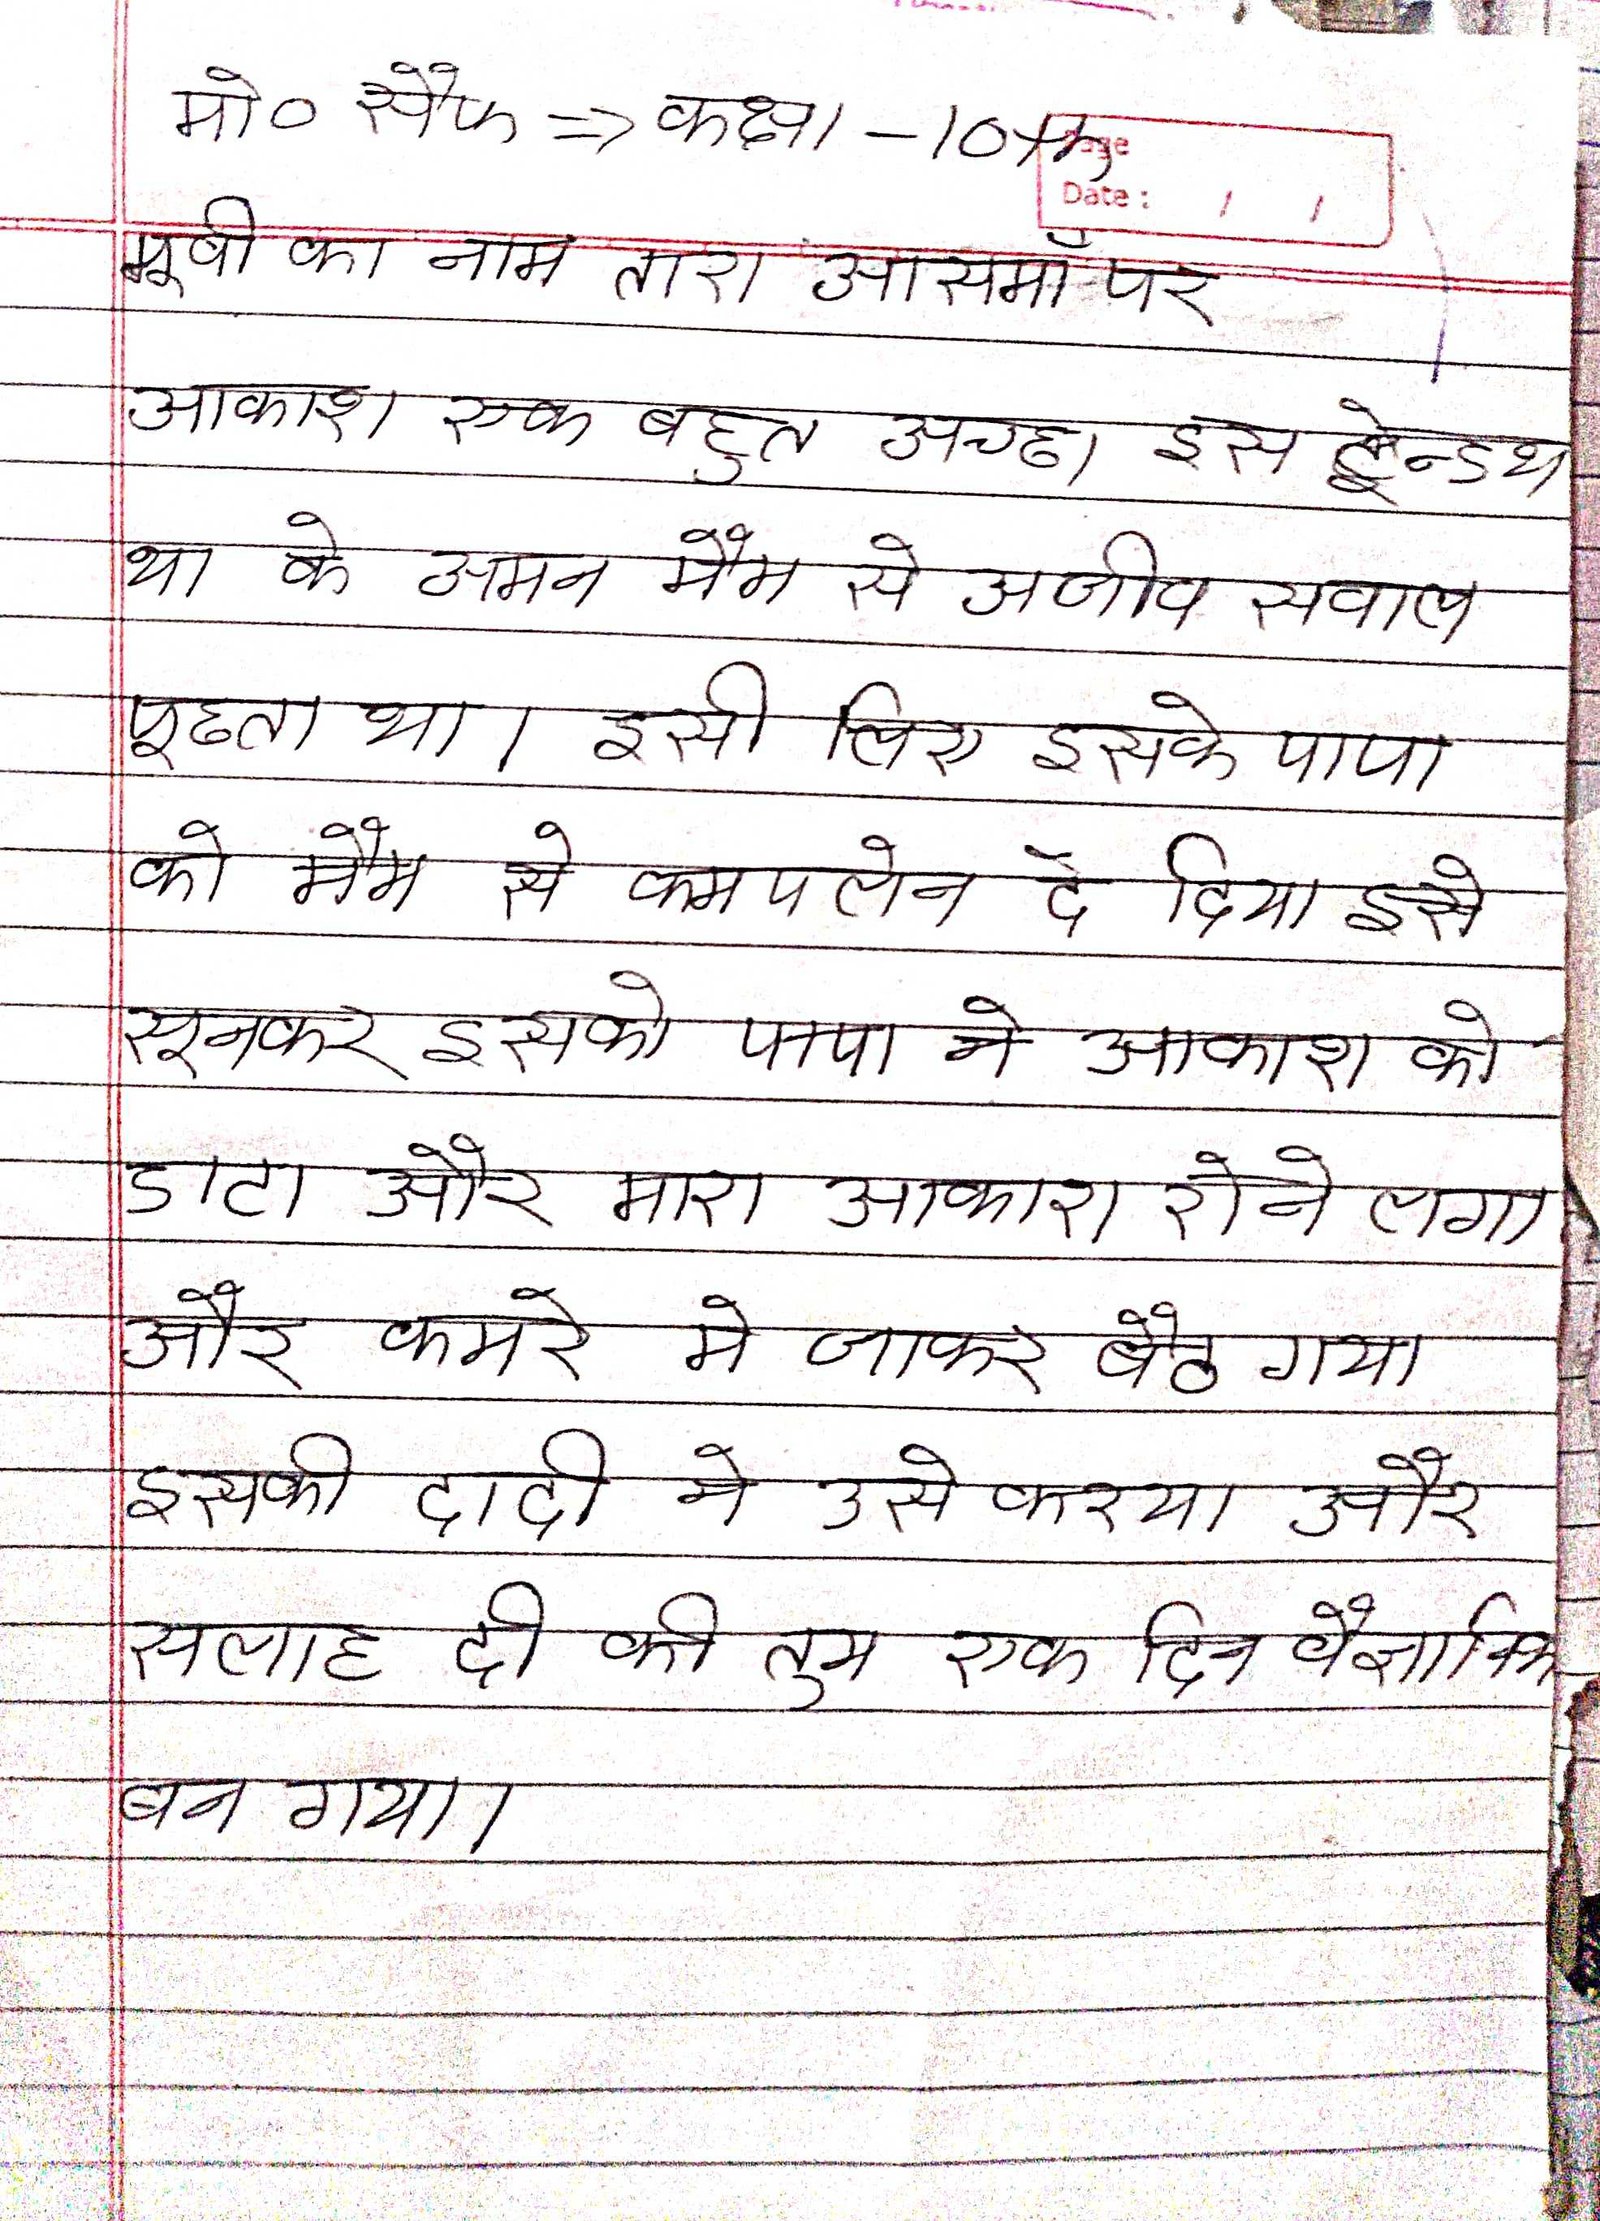 मो० सैफ => कक्षा - 10th
Page
Date : / /
मूवी का नाम तारा आसमाँ पर
आकाश एक बहुत अच्छा इस
था के अमन मैम से अजीव सवाल
पूछता था। इसी लिए इसके पापा
को मैम से कमपलेन दे दिया इसे
सूनकर इसको पापा ने आकाश को
डाटा और मारा आकाश रोने लगा
और कमरे मे जाकर बैठ गया
इसकी दादी ने उसे करया और
सलाह दी की तुम एक दिन
बन गया।